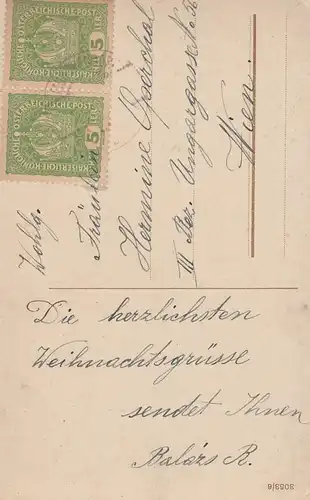 KAISERLICHE KÖNIGLICHE ÖSTERREICHISCHE POST
5 HELLER 5
KAISERLICHE KÖNIGLICHE ÖSTERREICHISCHE POST
5 HELLER 5
Wohlg.
Fräulein
Hermine
III Bez. Ungargasse
Wien.
Die herzlichsten
Weihnachtsgrüsse
sendet Ihnen
Balázs R.
3053/6